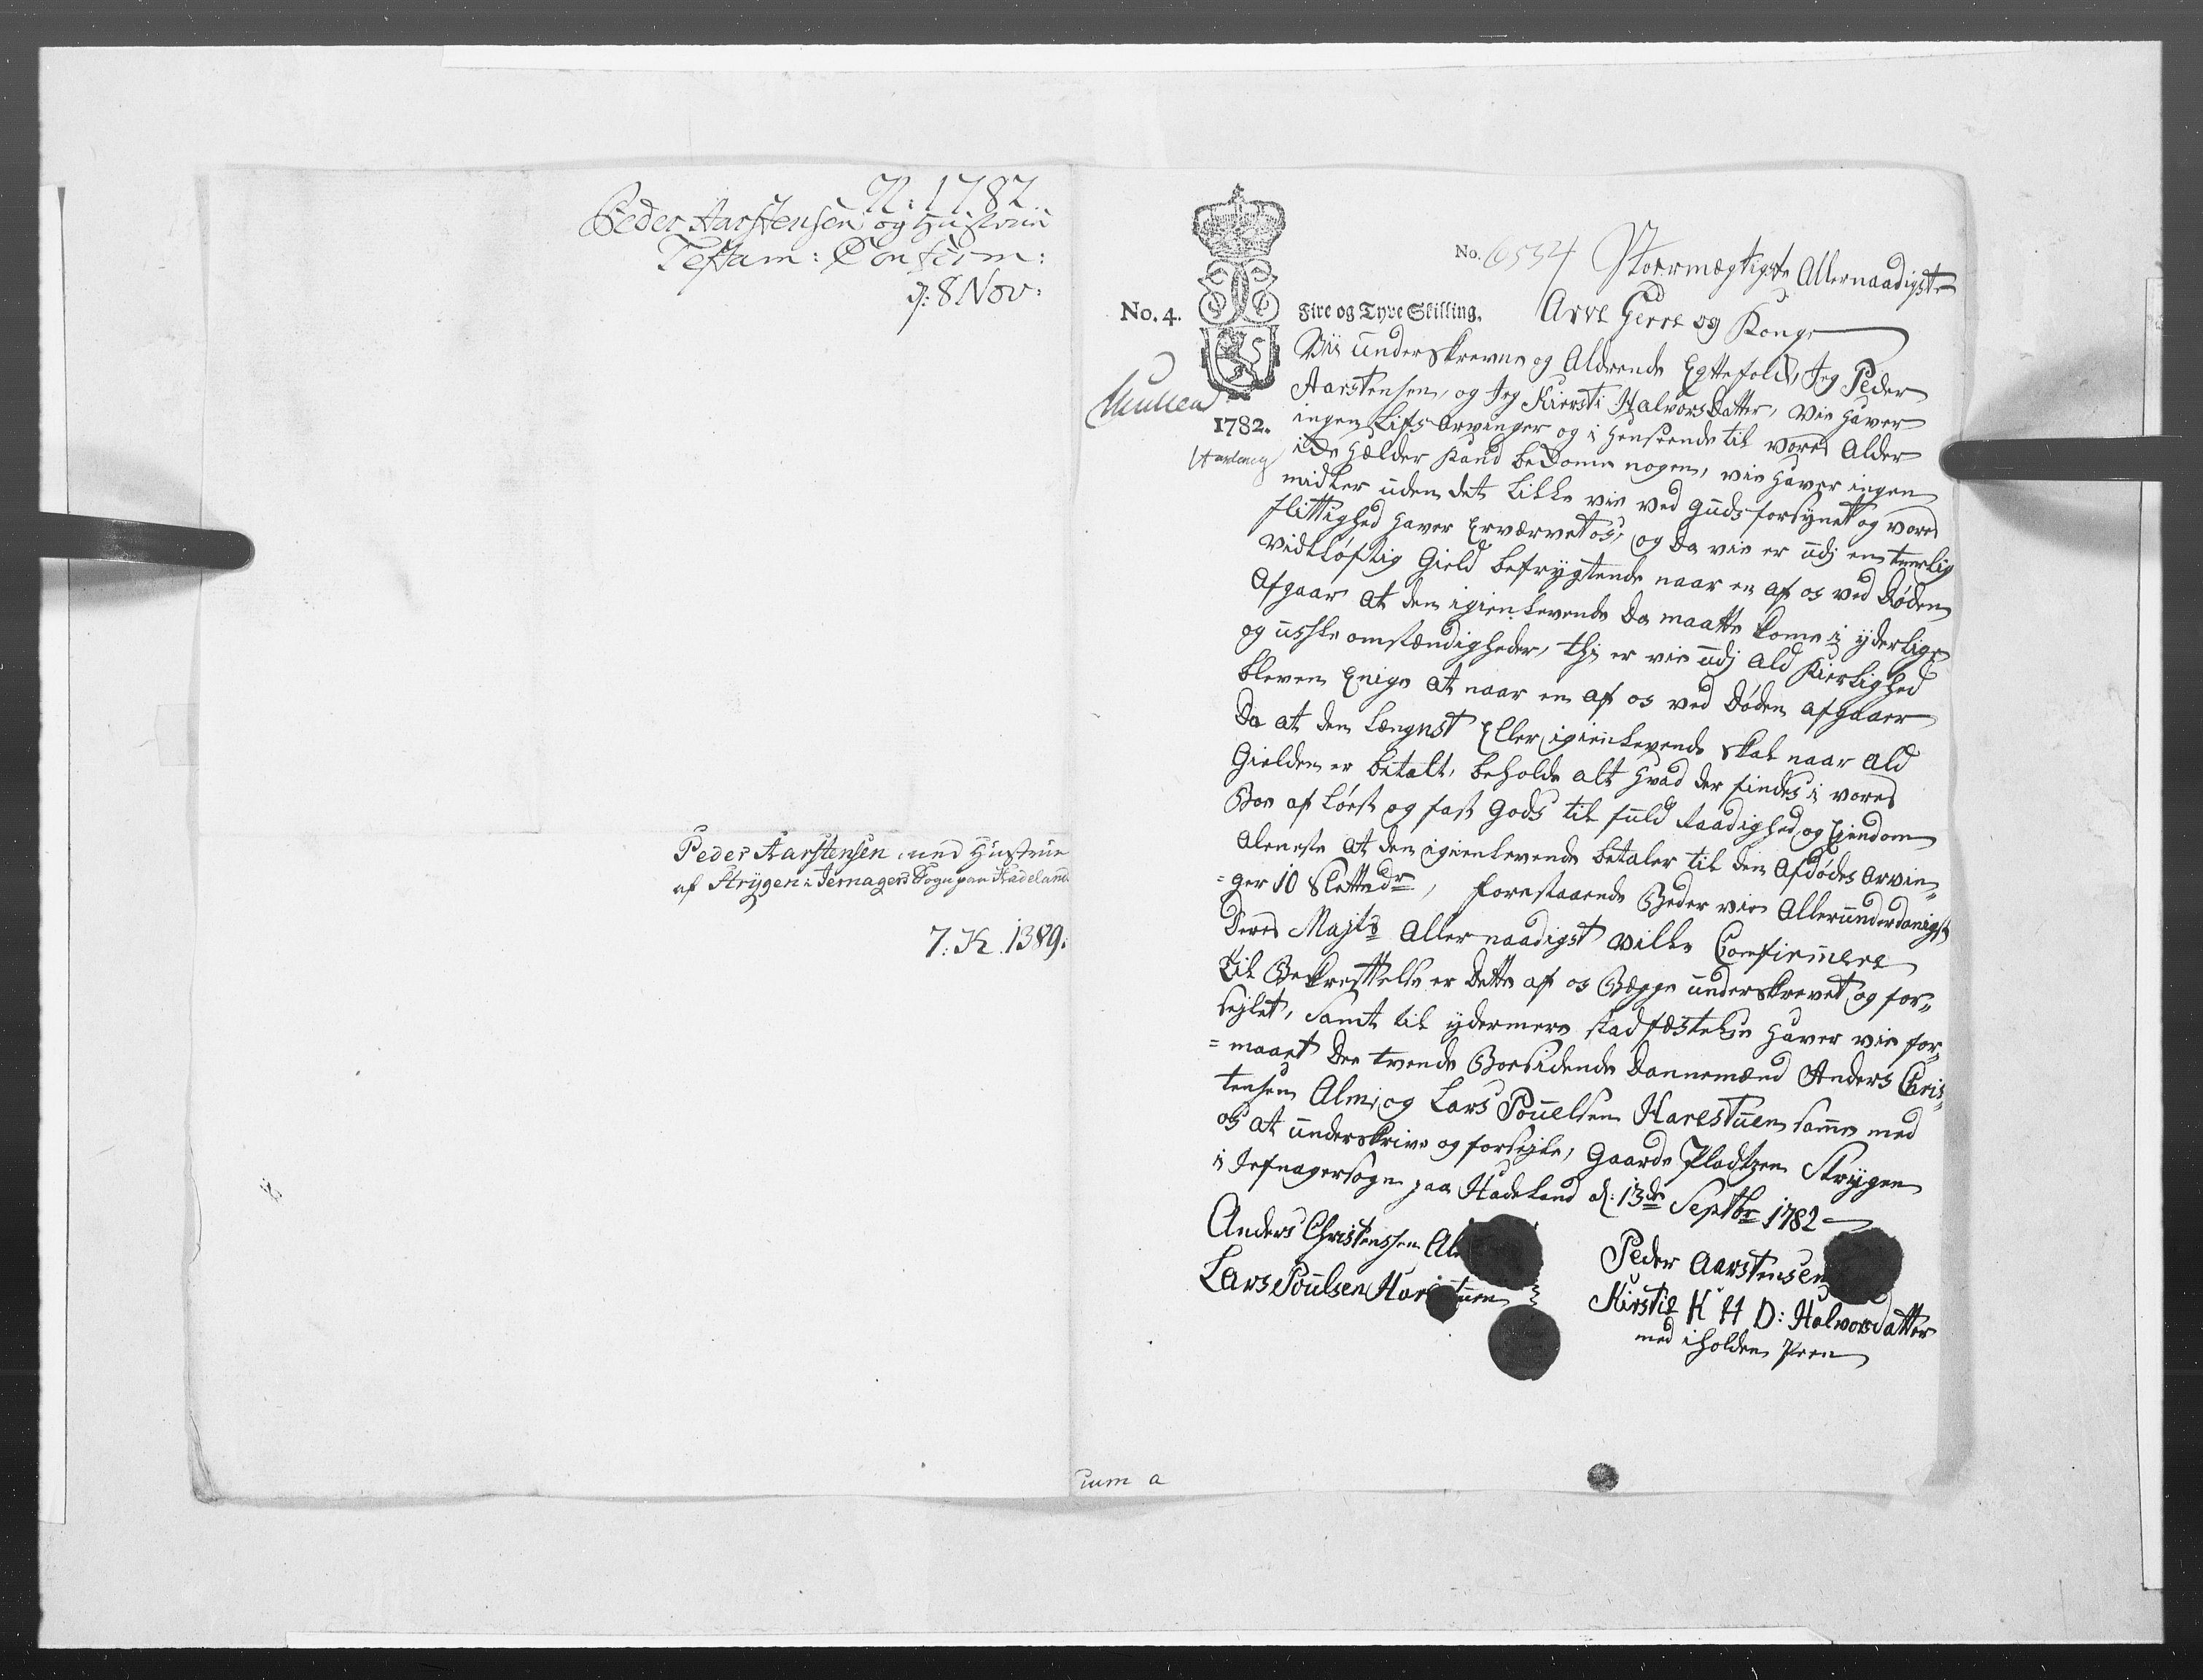 N: 1782
Peder Aarstensen og Hustrue
Testam: Confirm:
d: 8 Nov:
Peder Aarstensen med Hustrue
af Strygen i Jernagers Sogn paa Hadeland
7: K. 1389:
No. 6534
Stoermægtigste Allernaadigste
No. 4. Fire og Tyve Skilling. Arve Herre og Konge
1782.
Vii underskrevne og Aldrende Egtefolk, Jeg Peder
Aarstensen, og Jeg Kiersti Halvors Datter, vie haver
ingen Lifs Arvinger og i Henseende til vores Alder
ide hælder kand bekome nogen, vie haver ingen
midler uden det lille vie ved Guds forsynet og vores
flittighed haver Erværvet os, og da vie er udj en temelig
vidtløftig Gield befrygtende naar en af os ved Døden
Afgaar at den igienlevende da maatte kome i yderlige
og usle omstændigheder, thi er vie udj ald Kierlighed
bleven Enige at naar en af os ved Døden afgaaer
da at den Længst Eller igienlevende skal naar ald
Gielden er betalt, beholde alt hvad der findes i vores
Boe af Løest og fast Gods til fuld Raadighed og Eiendom
aleneste at den igienlevende betaler til den Afdødes Arvin-
=ger 10 Slettedr, forestaaende Beder vie Allerunderdanigst
Deres Majts Allernaadigst ville Confirmere
til Bekræftelse er dette af os Begge underskrevet og for-
seglet, samt til ydermere stadfæstelse haver vie for-
=maaet dee tvende Boesidende Dannemænd Anders Chris-
tensen Alm, og Lars Pouelsen Harestuen samme med
os at underskrive og forsegle, Gaarde Pladtzen Strygen
i Jefnager Sogn paa Hadeland d: 13de Septbr 1782
Anders Christenssen
Lars Poulsen Harestuen
Peder Aarstensen
Kirstie K H D: Halvorsdatter
med iholden Peen